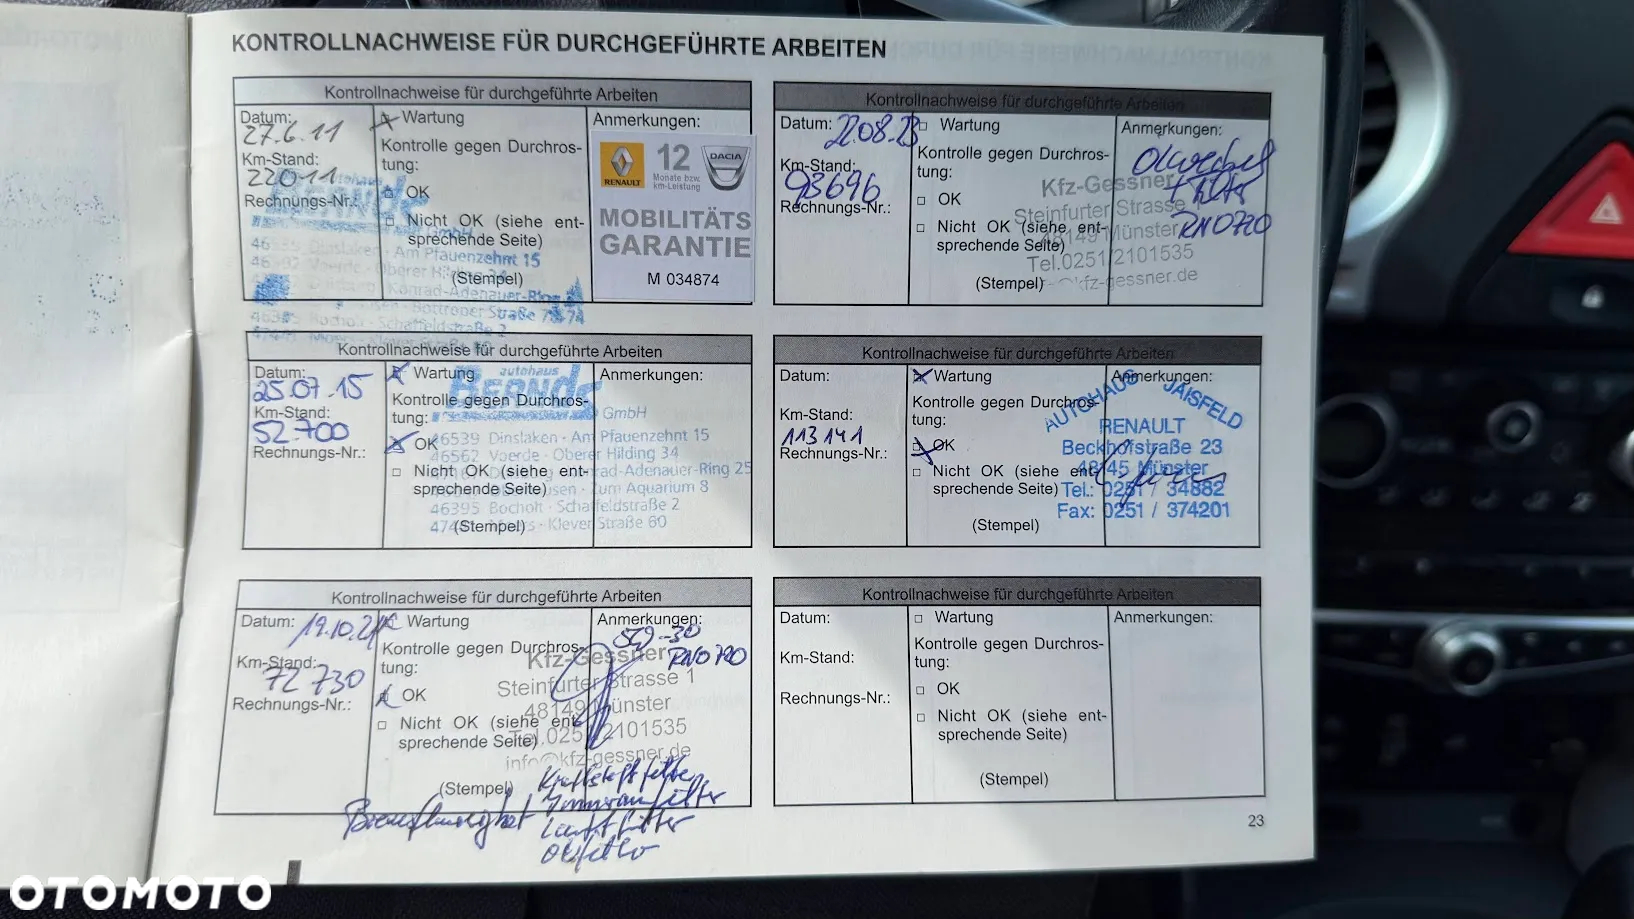 KONTROLLNACHWEISE FÜR DURCHGEFÜHRTE ARBEITEN
Kontrollnachweise für durchgeführte Arbeiten
Datum:
27.6.11
Km-Stand:
22011
Rechnungs-Nr.:
Wartung
Kontrolle gegen Durchros-
tung:
OK
Nicht OK (siehe ent-
sprechende Seite)
(Stempel)
Anmerkungen:
RENAULT
12
Monate bzw.
km-Leistung
DACIA
MOBILITÄTS
GARANTIE
M 034874
Kontrollnachweise für durchgeführte Arbeiten
Datum:
25.07.15
Km-Stand:
52.700
Rechnungs-Nr.:
Wartung
Kontrolle gegen Durchros-
tung:
OK
Nicht OK (siehe ent-
sprechende Seite)
(Stempel)
Anmerkungen:
autohaus
GmbH
46539 Dinslaken - Am Pfauenzehnt 15
46562 Voerde - Oberer Hilding 34
Konrad-Adenauer-Ring 25
Zum Aquarium 8
46395 Bocholt - Schaffeldstraße 2
Klever Straße 60
Kontrollnachweise für durchgeführte Arbeiten
Datum:
19.10.21
Km-Stand:
72 730
Rechnungs-Nr.:
Wartung
Kontrolle gegen Durchros-
tung:
OK
Nicht OK (siehe ent-
sprechende Seite)
(Stempel)
Anmerkungen:
5W-30
RN0720
Kfz-Gessner
Steinfurter Strasse 1
48149 Münster
Tel.0251/2101535
info@kfz-gessner.de
Kraftstofffilter
Innenraumfilter
Luftfilter
Kontrollnachweise für durchgeführte Arbeiten
Datum:
22.08.23
Km-Stand:
93696
Rechnungs-Nr.:
Wartung
Kontrolle gegen Durchros-
tung:
OK
Nicht OK (siehe ent-
sprechende Seite)
(Stempel)
Anmerkungen:
Ölwechsel
+ Filter
RN0720
Kfz-Gessner
Steinfurter Strasse 1
48149 Münster
Tel.0251/2101535
kfz-gessner.de
Kontrollnachweise für durchgeführte Arbeiten
Datum:
Km-Stand:
113141
Rechnungs-Nr.:
Wartung
Kontrolle gegen Durchros-
tung:
OK
Nicht OK (siehe ent-
sprechende Seite)
(Stempel)
Anmerkungen:
AUTOHAUS JAISFELD
RENAULT
Beckhofstraße 23
48145 Münster
Tel.: 0251 / 34882
Fax: 0251 / 374201
Kontrollnachweise für durchgeführte Arbeiten
Datum:
Km-Stand:
Rechnungs-Nr.:
Wartung
Kontrolle gegen Durchros-
tung:
OK
Nicht OK (siehe ent-
sprechende Seite)
(Stempel)
Anmerkungen:
23
OTOMOTO